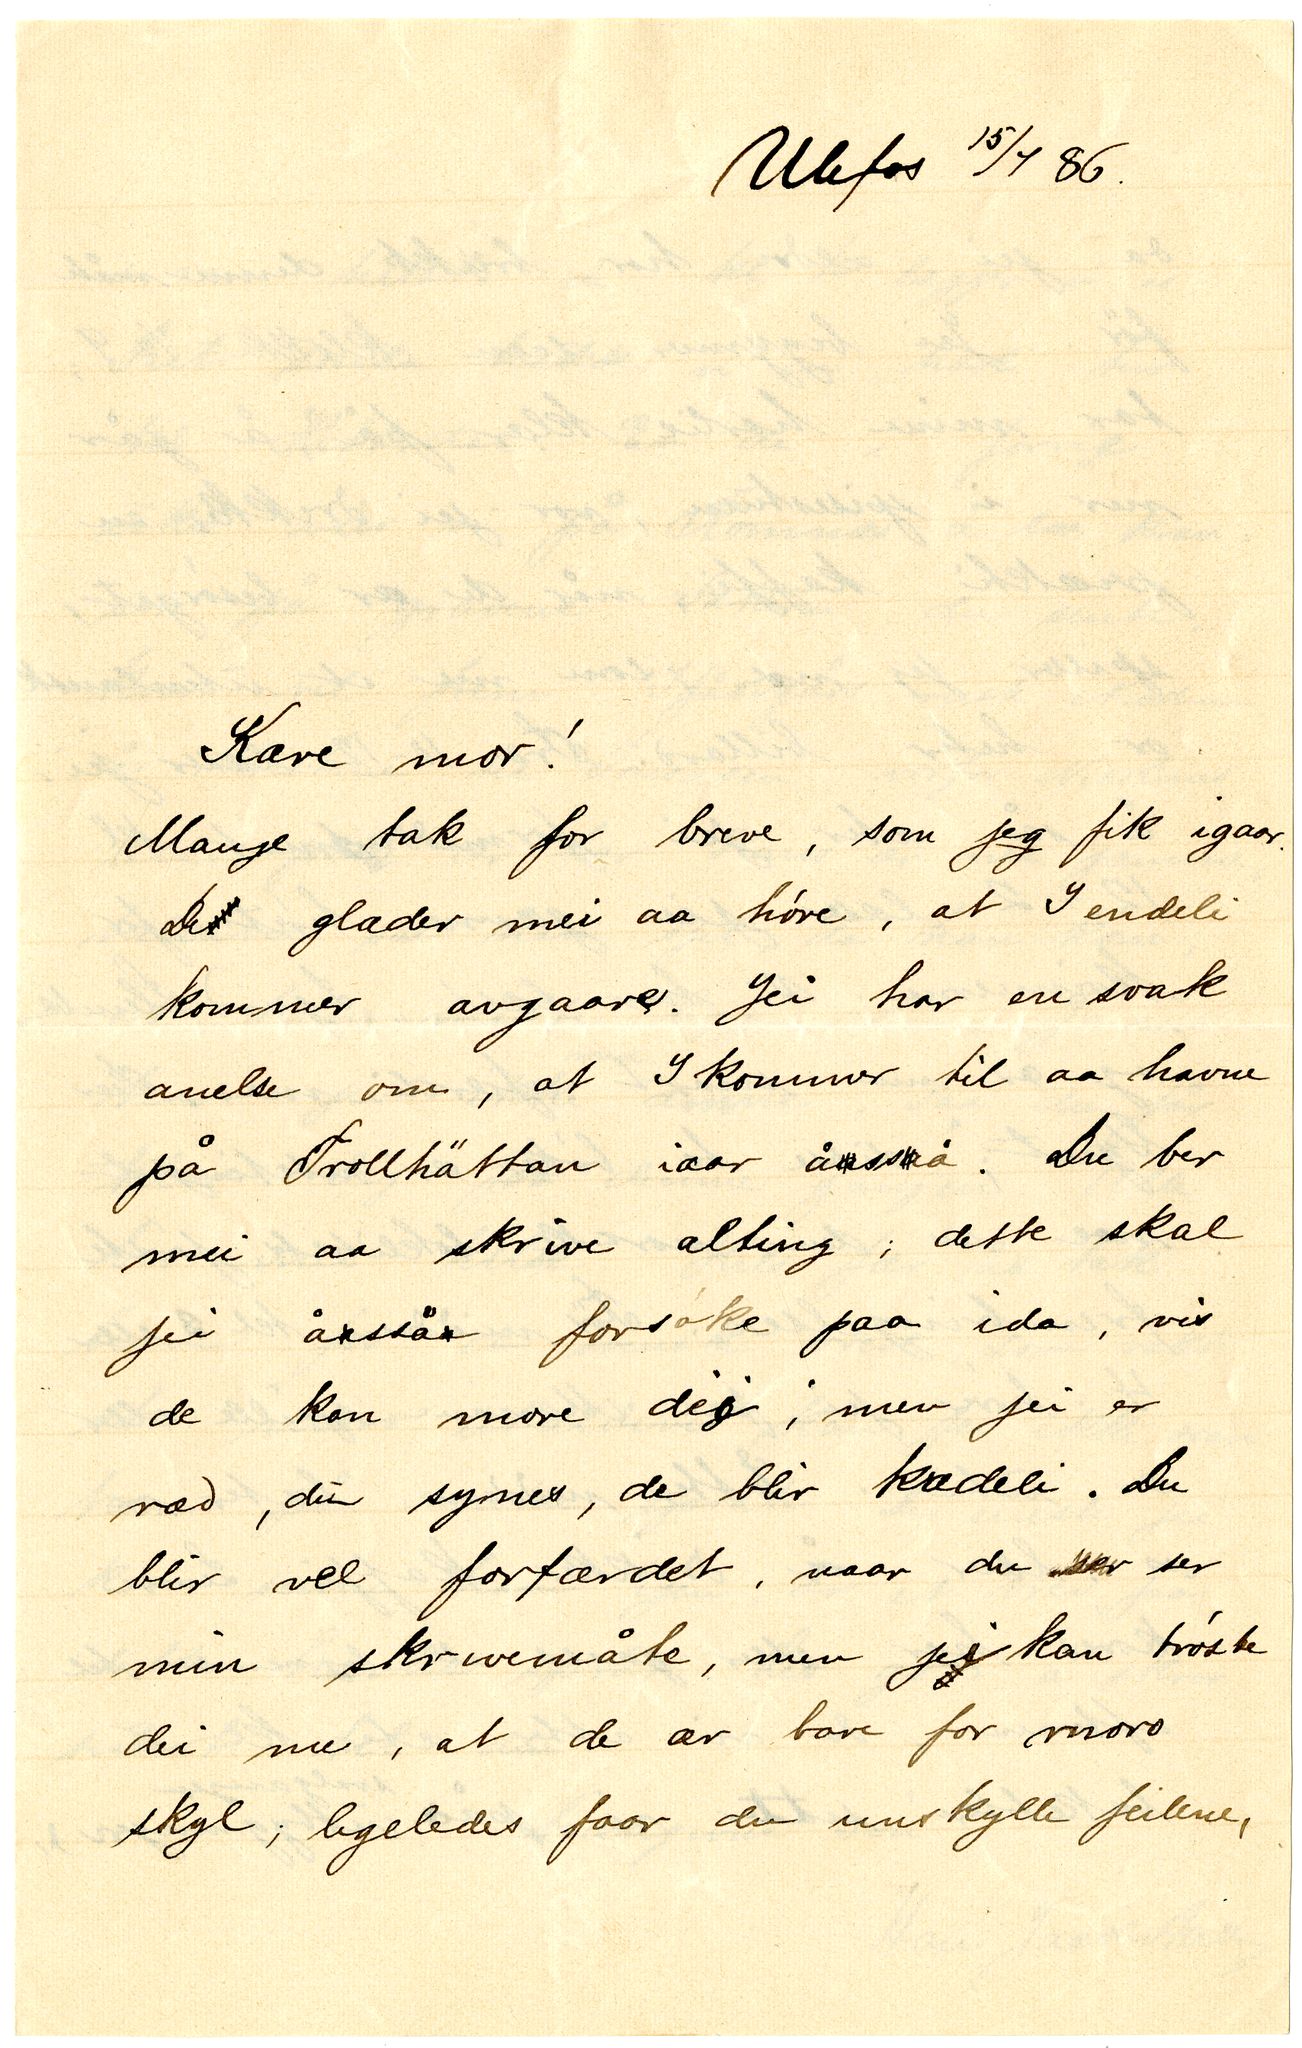 Ulefos 15/7 86.
Kære mor!
Mange tak for breve, som jeg fik igaar.
De glæder mei aa höre, at I endeli
kommer avgaare. Jei har en svak
anelse om, at I kommer til aa havne
på Trollhättan iaar åsså. Du ber
mei aa skrive alting; dette skal
jei åsså forsöke paa ida, vis
de kan more dei; men jei er
ræd, du synes, de blir kedeli. Du
blir vel forfærdet, naar du ser
min skrivemåte, men jei kan tröste
dei me, at de ær bare for moro
skyl; ligeledes faar du unskylle feilene,